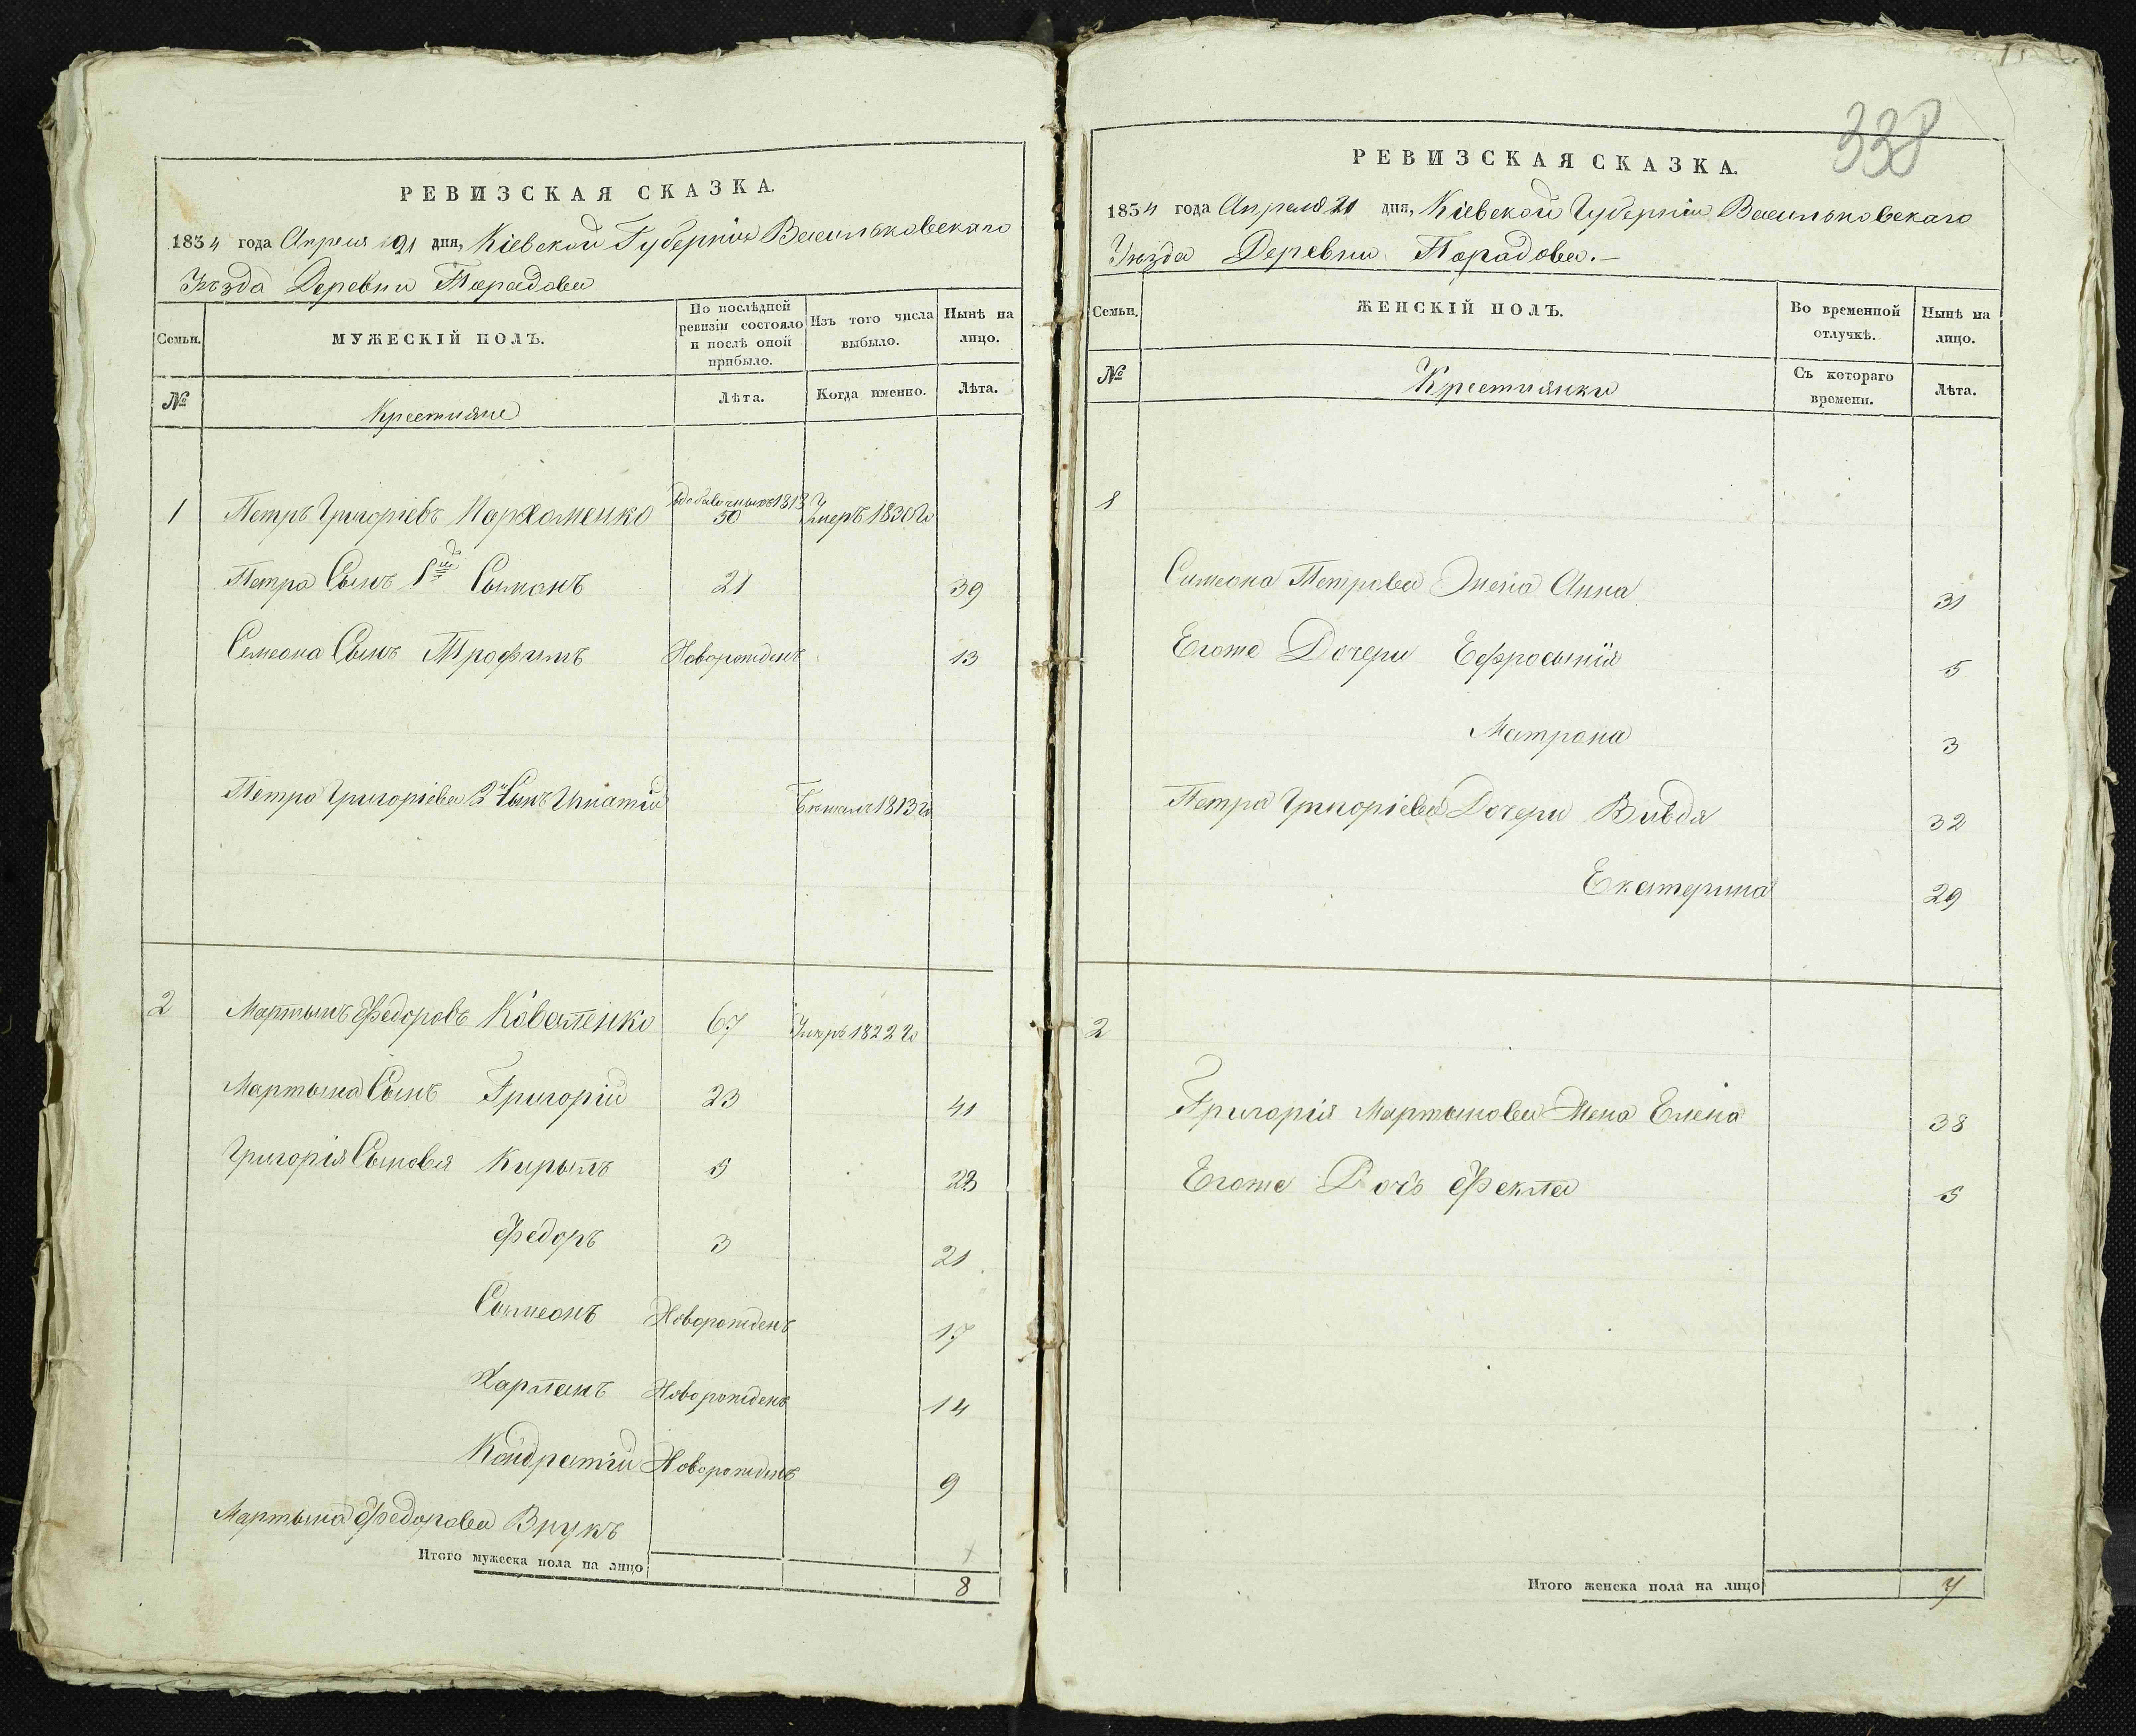 РЕВИЗСКАЯ СКАЗКА.
1834 года Апреля 21 дня, Кіевской Губерніи Васильковскаго
Уезда Деревни Парадова
Семьи.
МУЖЕСКІЙ ПОЛЪ.
По послѣдней ревизіи состояло и послѣ оной прибыло.
Изъ того числа выбыло.
Нынѣ на лицо.
№
Крестияне
Лѣта.
Когда именно.
Лѣта.
1 Петръ Григоріевъ Пархоменко 50 Умеръ 1830 Го
Петра Сынъ 1й Сымонъ 21 39
Семеона Сынъ Трофимъ Новорожденъ 13
Петра Григоріева 2й Сынъ Игнатій 1813 Го
2 Мартынъ Федоровъ Коваленко 67 Умеръ 1822 Го
Мартына Сынъ Григорій 23 41
Григорія Сыновья Кирылъ 5 23
Федоръ 3 21
Сымеонъ Новорожденъ 17
Харланъ Новорожденъ 14
Кондратій Новорожденъ 9
Мартына Федорова Внукъ
Итого мужеска пола на лицо 8
338
РЕВИЗСКАЯ СКАЗКА.
1834 года Апреля 21 дня, Кіевской Губерніи Васильковскаго
Уезда Деревни Парадова.-
Семьи.
ЖЕНСКІЙ ПОЛЪ.
Во временной отлучкѣ.
Нынѣ на лицо.
№
Крестиянки
Съ котораго времени.
Лѣта.
1
Симеона Петрова Жена Анна 31
Егоже Дочери Ефросынія 5
Матрона 3
Петра Григоріева Дочери Вивдя 32
Екатерина 29
2
Григорія Мартынова Жена Елена 38
Егоже Дочь Фекла 5
Итого женска пола на лицо 7